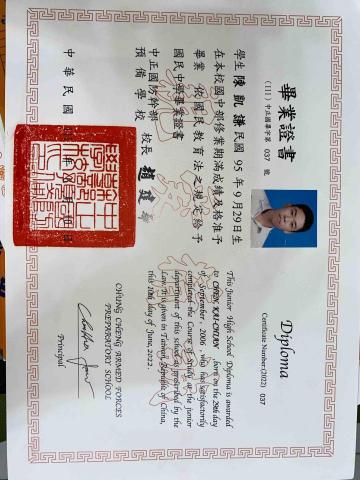 畢業證書
(111)中正國畢字第 037 號
學生陳凱謙民國95年9月29日生
在本校國中部修業期滿成績及格准予
畢業 依國民教育法之規定給予
國民中學畢業證書
中正國防幹部
預備學校 校長
中華民國
Diploma
Certificate Number:(2022) 037
This Junior High School Diploma is awarded
to CHEN, KAI-CHIAN ,born on the 29th day
of September , 2006 , who has satisfactorily
completed the Course of Study at the junior
department of this school as prescribed by the
Law. It is given in Taiwan, Republic of China,
this 10th day of June, 2022.
CHUNG CHENG ARMED FORCES
PREPARATORY SCHOOL
Principal